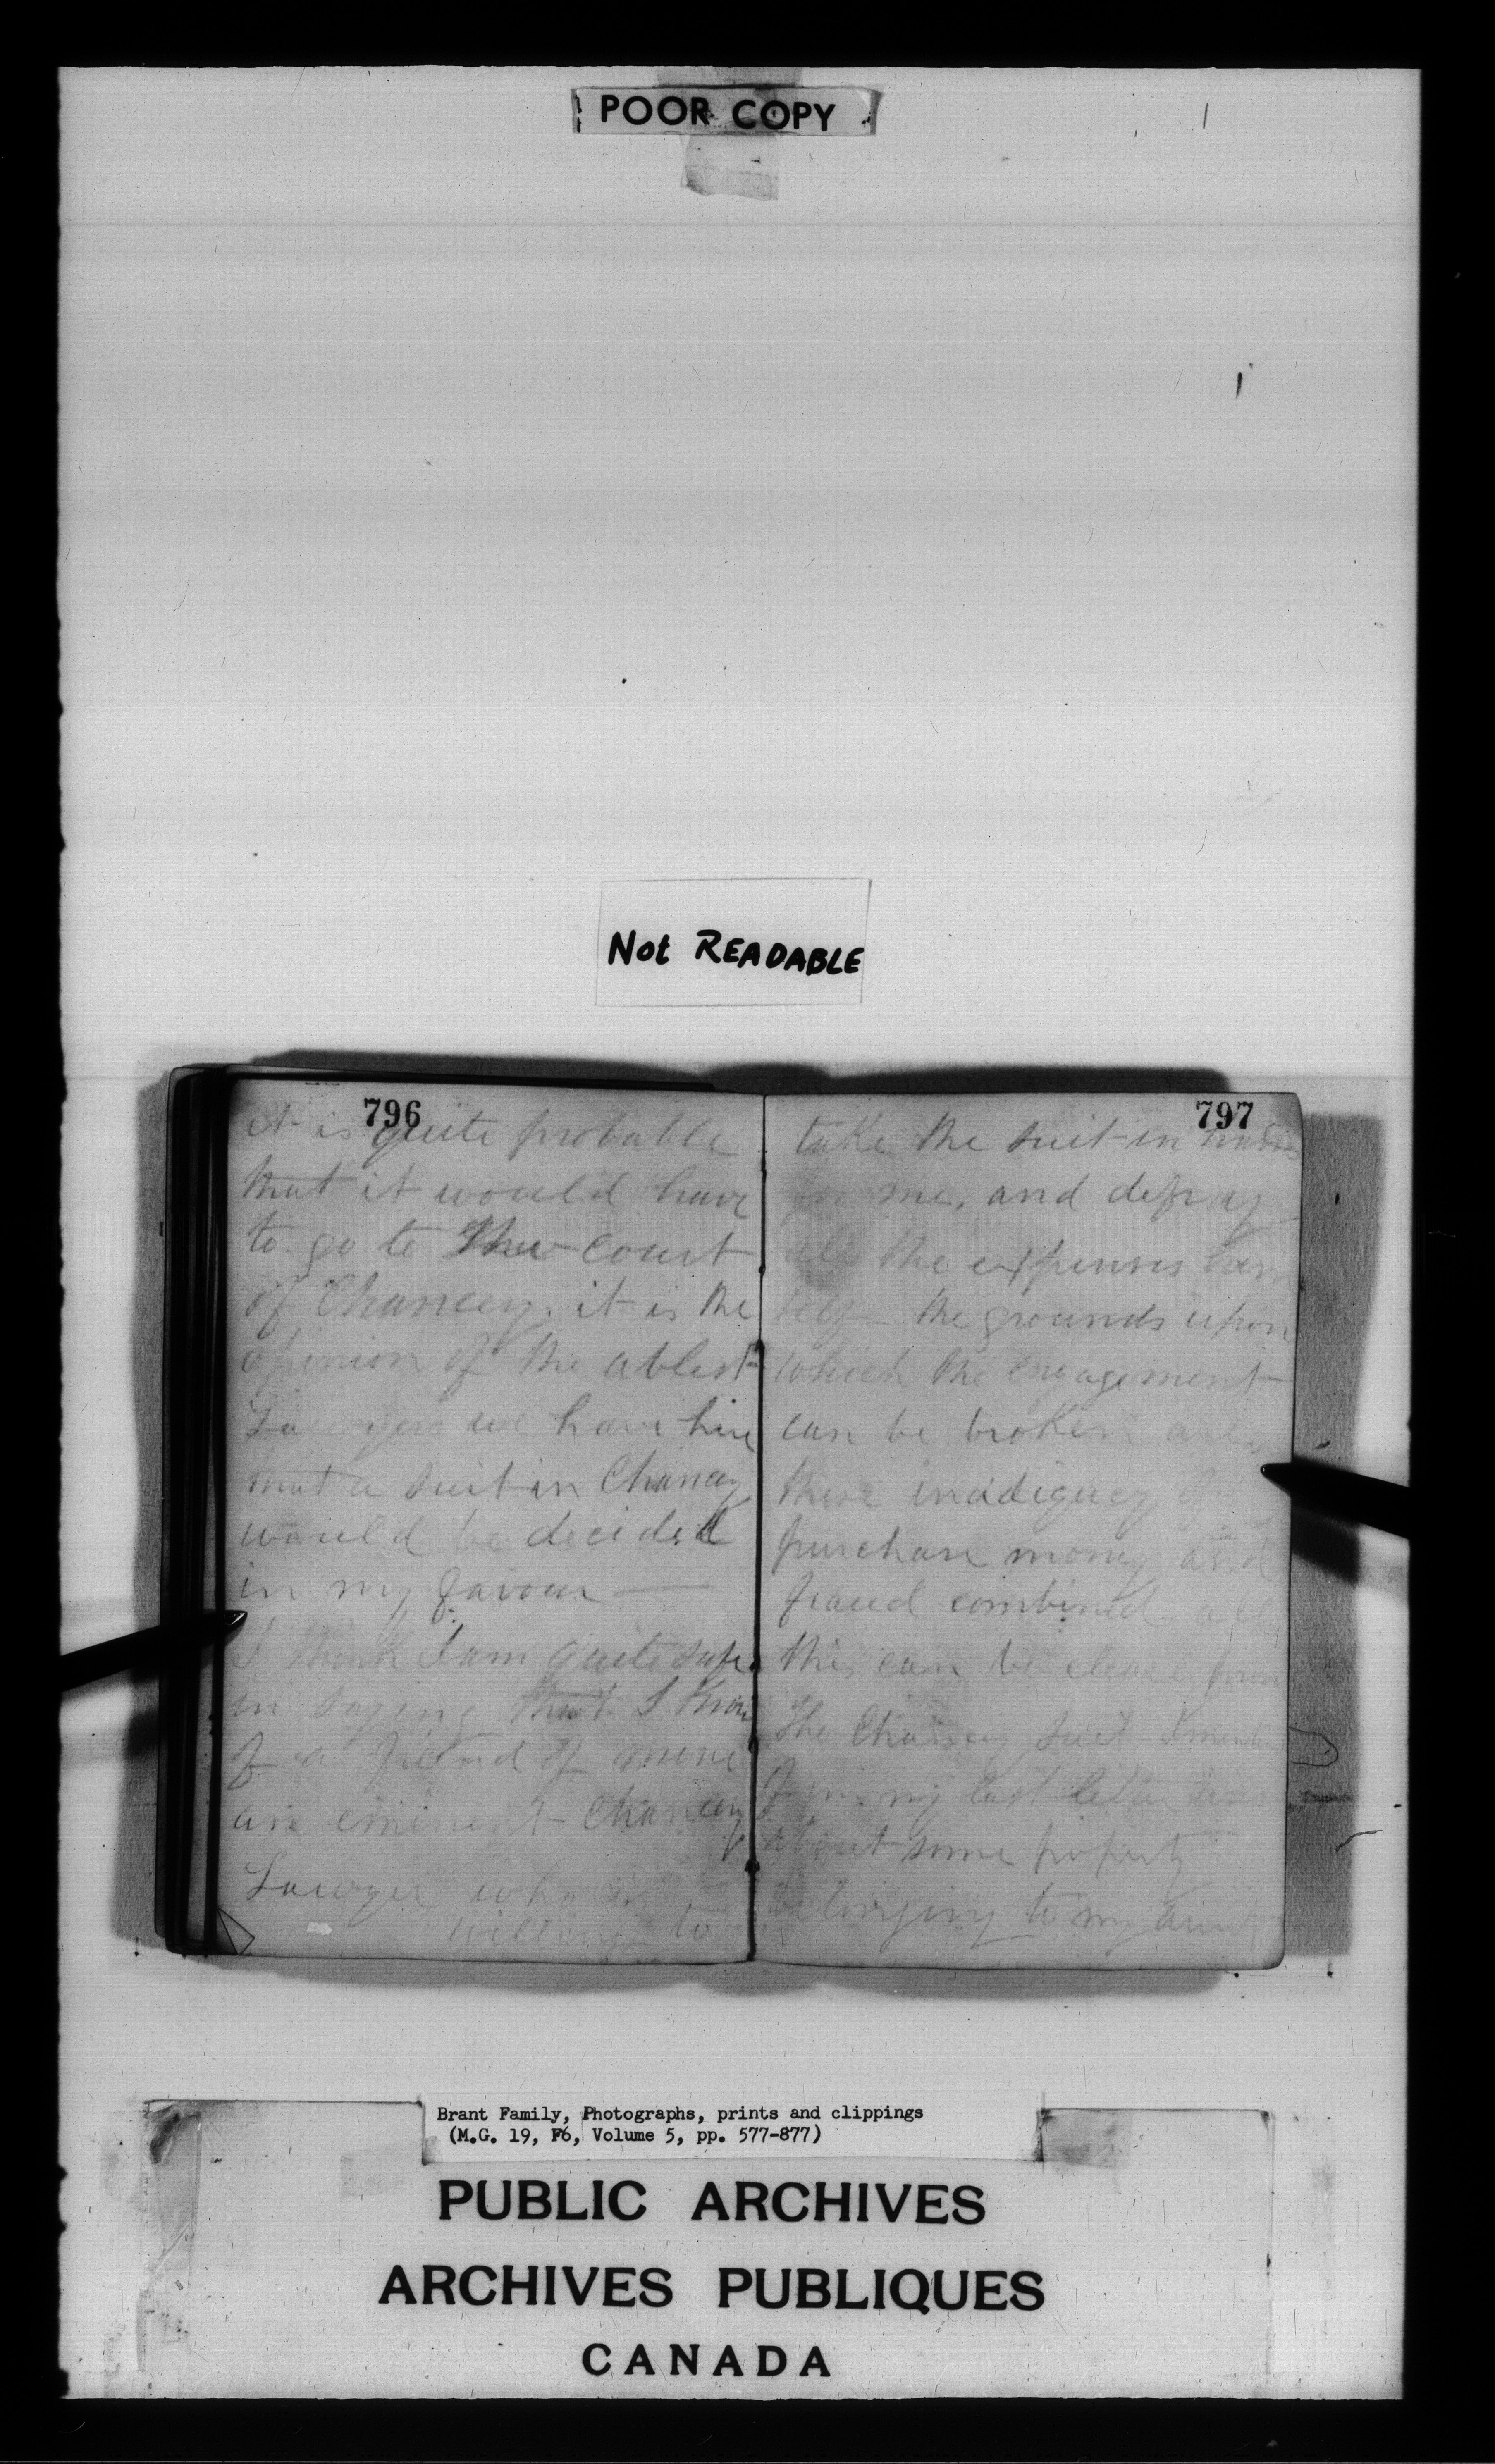 POOR COPY
Not READABLE
796
it is quite probable
that it would have
to go to the court
of Chancery. it is the
opinion of the ablest
Lawyers we have here
that a suit in Chancery
would be decided
in my favour —
I think I am quite safe
in saying that I know
of a friend of mine
an eminent Chancery
Lawyer who is
willing to
797
take the suit in
for me, and defray
all the expenses him
self – the grounds upon
which the engagement
can be broken are
these inadiquacy of
purchase money and
fraud combined – all
this can be clearly
The Chancery suit
in my last letter was
about some property
belonging to my aunt
Brant Family, Photographs, prints and clippings
(M.G. 19, F6, Volume 5, pp. 577-877)
PUBLIC ARCHIVES
ARCHIVES PUBLIQUES
CANADA